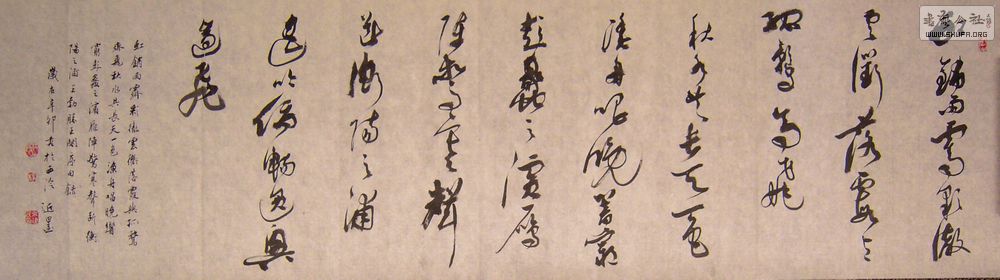 书法公社
WWW.SHUFA.ORG
虹銷雨霽彩徹
雲衢落霞與
孤鶩齊飛
秋水共長天一色
漁舟唱晚響窮
彭蠡之濱雁
陣驚寒聲
斷衡陽之浦
遙吟俯暢逸興
遄飛
虹銷雨霽彩徹雲衢落霞與孤鶩
齊飛秋水共長天一色漁舟唱晚響
窮彭蠡之濱雁陣驚寒聲斷衡
陽之浦王勃滕王閣序句
歲在辛卯書於西泠